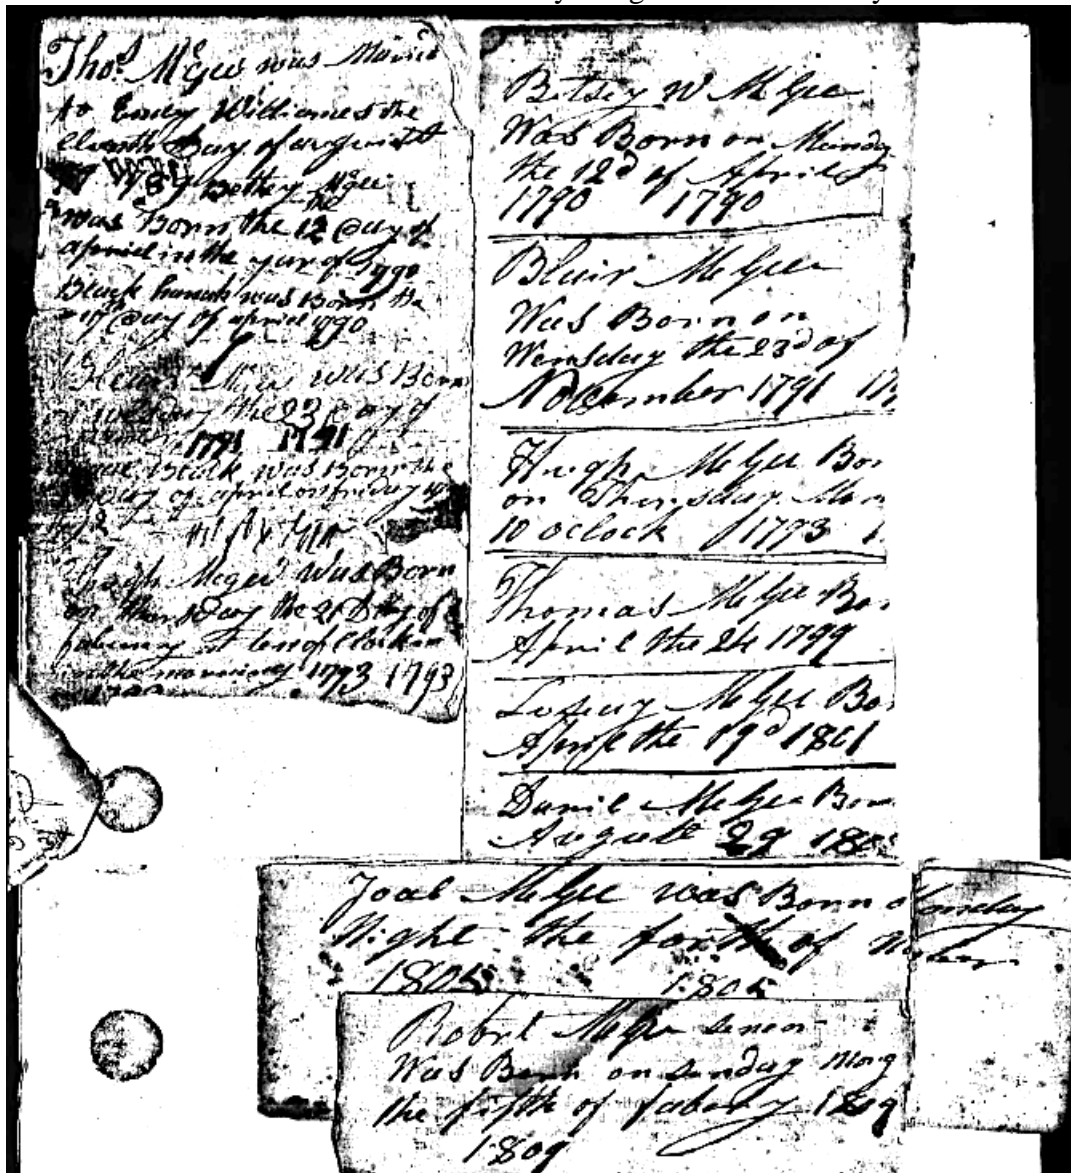 Thos. McGee was Maried
to Emey Williames the
Eleventh Day of august
1789 Bettey McGee
was Born the 12 Day of
apriel in the year of 1790
Black hanah was Born the
17 Day of apriel 1790
McGee was Born
the 23 Day of
1791 1791
Black was Born the
Day of april on friday
Hugh McGee was Born
on thursday the 21 Day of
febuary at ten of Clock
in the morning 1793 1793
Betsey W McGee
Was Born on Munday
the 12d of April
1790 1790
Blair McGee
Was Born on
Wensday the 23d of
November 1791
Hugh McGee Bor
on Thursday
10 oclock 1793
Thomas McGee Bor
April the 24 1799
McGee Bor
April the 19d 1801
Danil McGee Born
August 29
Joal McGee was Born
Night the forth of
1805 1805
Robrt McGee
Was Born on sunday Morg
the fifth of febary 1809
1809